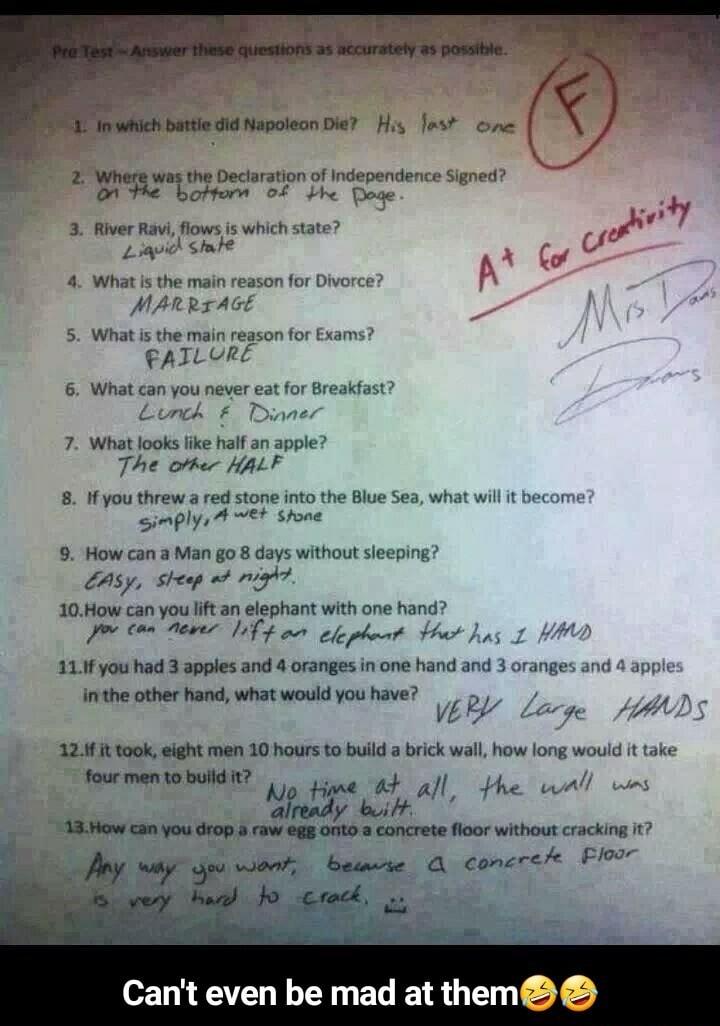 Pre Test – Answer these questions as accurately as possible.
F
1. In which battle did Napoleon Die? His last one
2. Where was the Declaration of Independence Signed?
on the bottom of the page.
3. River Ravi, flows is which state?
Liquid state
A+ for Creativity
4. What is the main reason for Divorce?
MARRIAGE
Mrs D
5. What is the main reason for Exams?
FAILURE
6. What can you never eat for Breakfast?
Lunch & Dinner
7. What looks like half an apple?
The other HALF
8. If you threw a red stone into the Blue Sea, what will it become?
simply, A wet stone
9. How can a Man go 8 days without sleeping?
EASY, sleep at night.
10.How can you lift an elephant with one hand?
you can never lift an elephant that has 1 HAND
11.If you had 3 apples and 4 oranges in one hand and 3 oranges and 4 apples
in the other hand, what would you have?
VERY Large HANDS
12.If it took, eight men 10 hours to build a brick wall, how long would it take
four men to build it?
No time at all, the wall was
already built.
13.How can you drop a raw egg onto a concrete floor without cracking it?
Any way you want, because a concrete Floor
is very hard to crack.
Can't even be mad at them🤣🤣